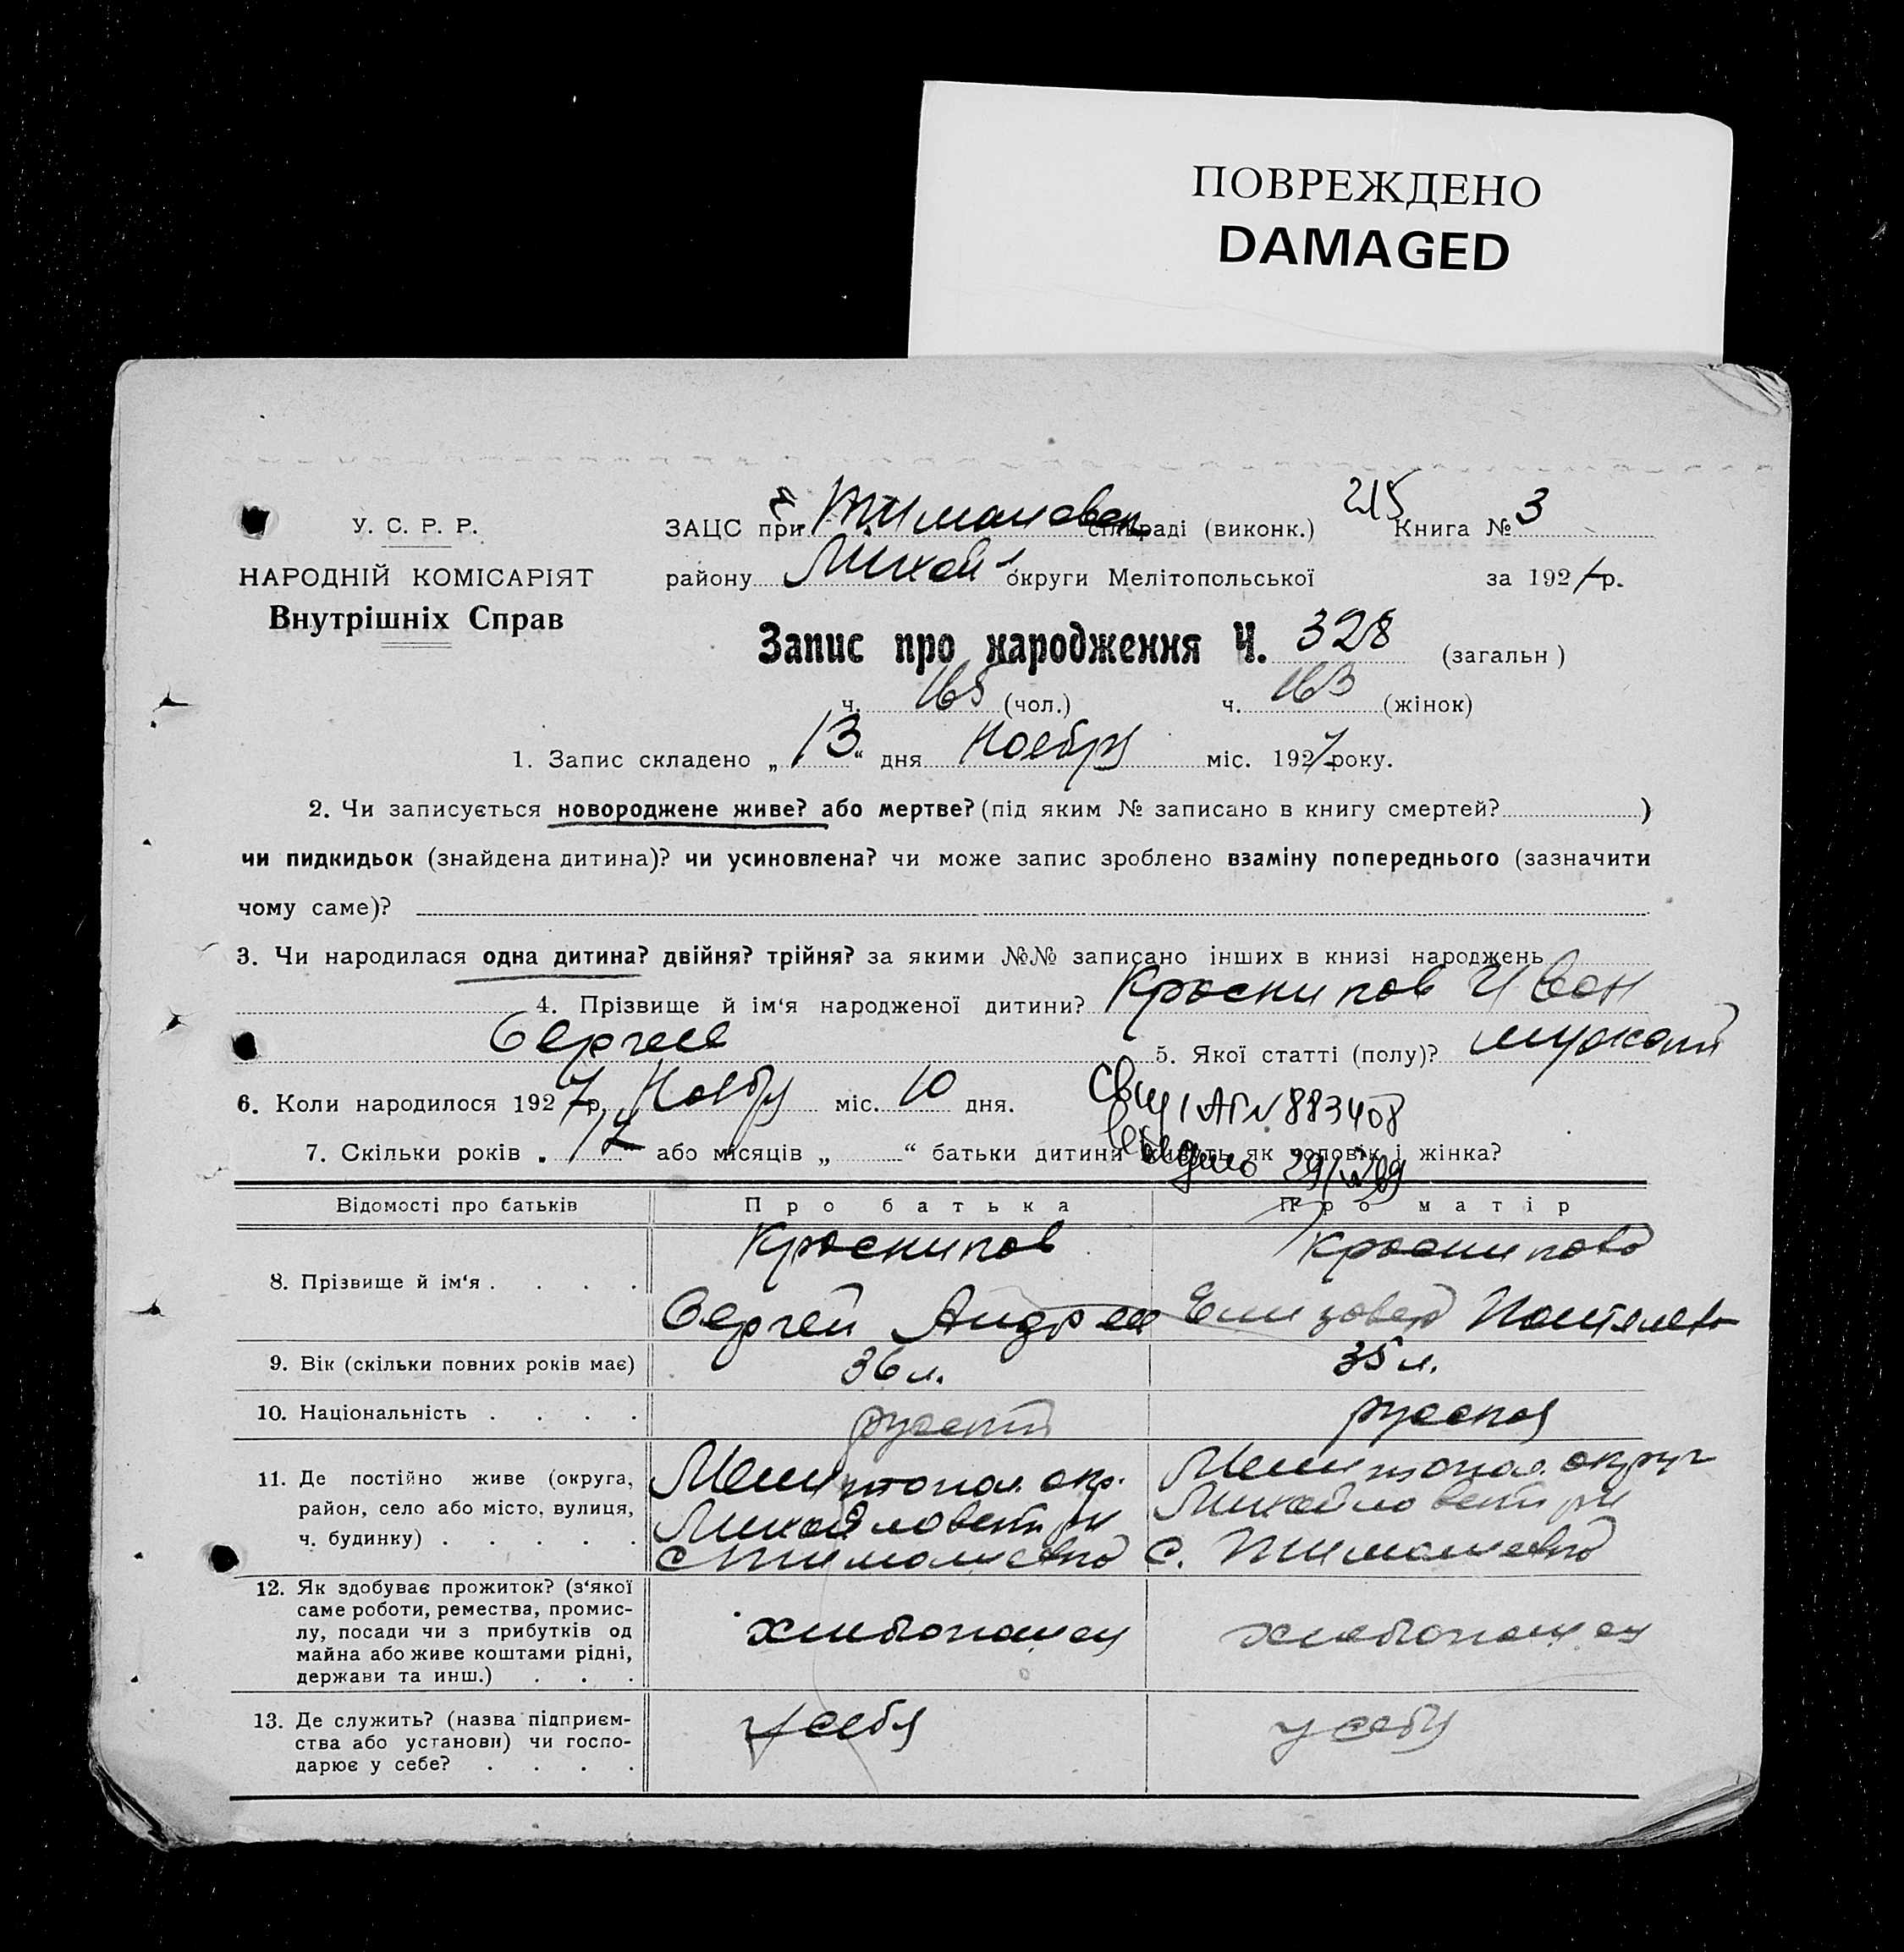 ПОВРЕЖДЕНО
DAMAGED
215
У. С. Р. Р.
ЗАЦС при Тимашовск. сільраді (виконк.) Книга № 3
НАРОДНІЙ КОМІСАРІЯТ
Внутрішніх Справ
району Михай округи Мелітопольської за 1927 р.
Запис про народження Ч. 328 (загальн)
ч. 165 (чол.) ч. 163 (жінок)
1. Запис складено „13“ дня Ноября міс. 1927 року.
2. Чи записується новороджене живе? або мертве? (під яким № записано в книгу смертей? )
чи пидкидьок (знайдена дитина)? чи усиновлена? чи може запис зроблено взаміну попереднього (зазначити
чому саме)?
3. Чи народилася одна дитина? двійня? трійня? за якими №№ записано інших в книзі народжень
4. Прізвище й ім‘я народженої дитини? Краснипов Иван
Сергеев 5. Якої статті (полу)? мужской
6. Коли народилося 1927 р. Ноябр міс. 10 дня.
АГ N 883408
7. Скільки років „17“ або місяців „ “ батьки дитини живуть як чоловік і жінка?
Відомості про батьків Про батька Про матір
8. Прізвище й ім‘я . . . .
Краснипов
Сергей Андрее
Краснипова
Елизавет Пантелев
9. Вік (скільки повних років має) 36 л. 35 л.
10. Національність . . . . русский русская
11. Де постійно живе (округа,
район, село або місто, вулиця,
ч. будинку) . . . . .
Мелитопол. окр.
Михайловский рн
с Тимашевка
Мелитопол. округ
Михайловский рн
с. Тимашевка
12. Як здобуває прожиток? (з‘якої
саме роботи, ремества, промис-
лу, посади чи з прибутків од
майна або живе коштами рідні,
держави та инш.) . . .
хлебопашец
хлебопашец
13. Де служить? (назва підприєм-
ства або установи) чи госпо-
дарює у себе? . . . .
у себя
у себя